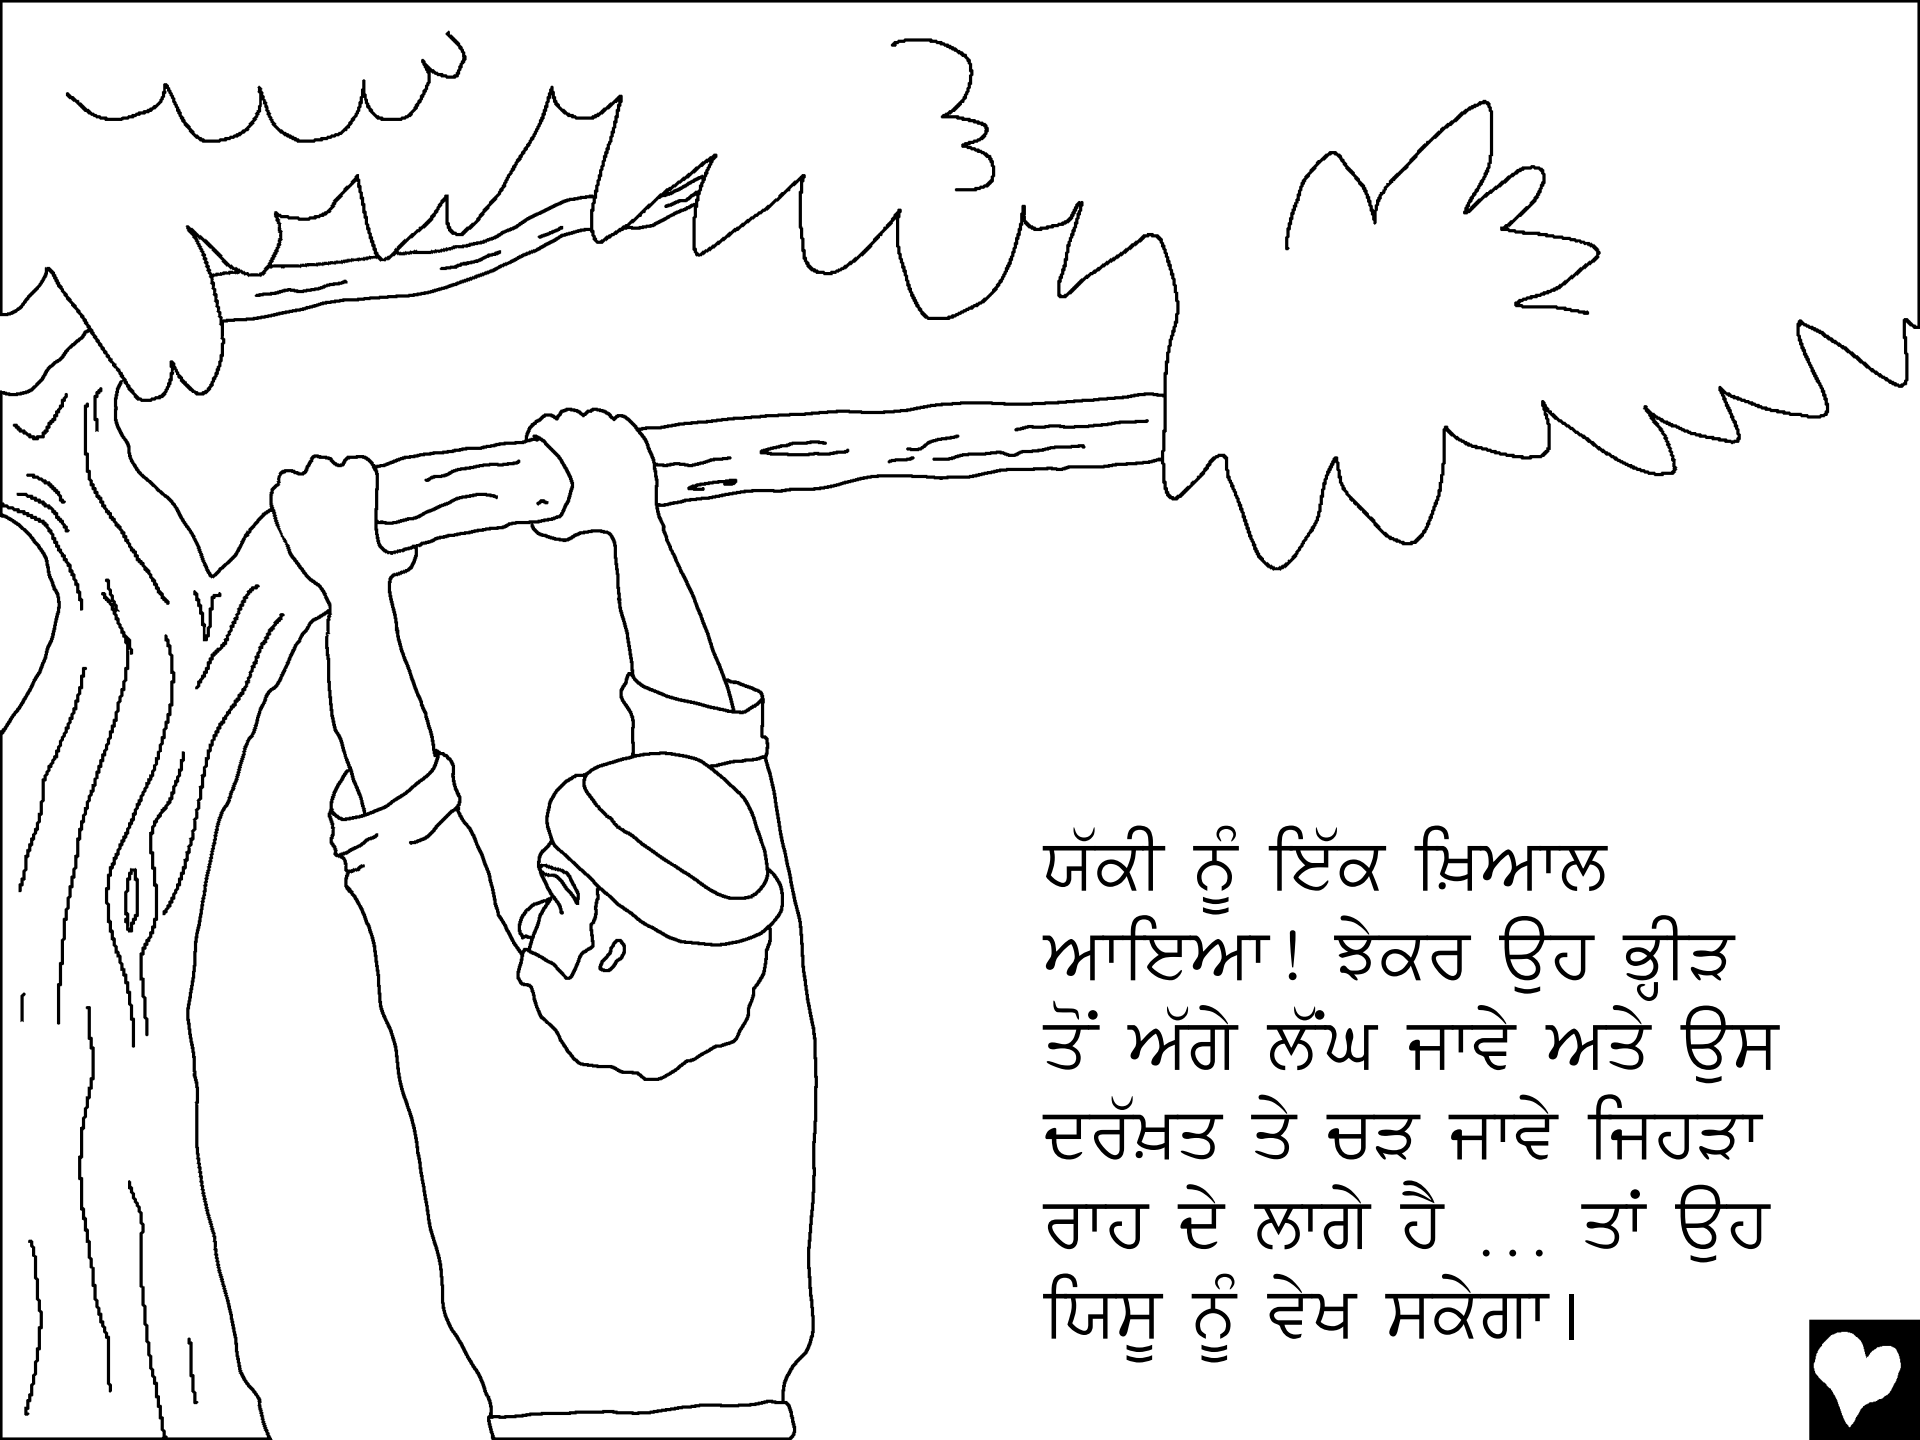 ਯੱਕੀ ਨੂੰ ਇੱਕ ਖ਼ਿਆਲ
ਆਇਆ! ਝੇਕਰ ਉਹ ਭ੍ਹੀੜ
ਤੋਂ ਅੱਗੇ ਲੱਂਘ ਜਾਵੇ ਅਤੇ ਉਸ
ਦਰੱਖ਼ਤ ਤੇ ਚੜ ਜਾਵੇ ਜਿਹੜਾ
ਰਾਹ ਦੇ ਲਾਗੇ ਹੈ ... ਤਾਂ ਉਹ
ਯਿਸੂ ਨੂੰ ਵੇਖ ਸਕੇਗਾ।